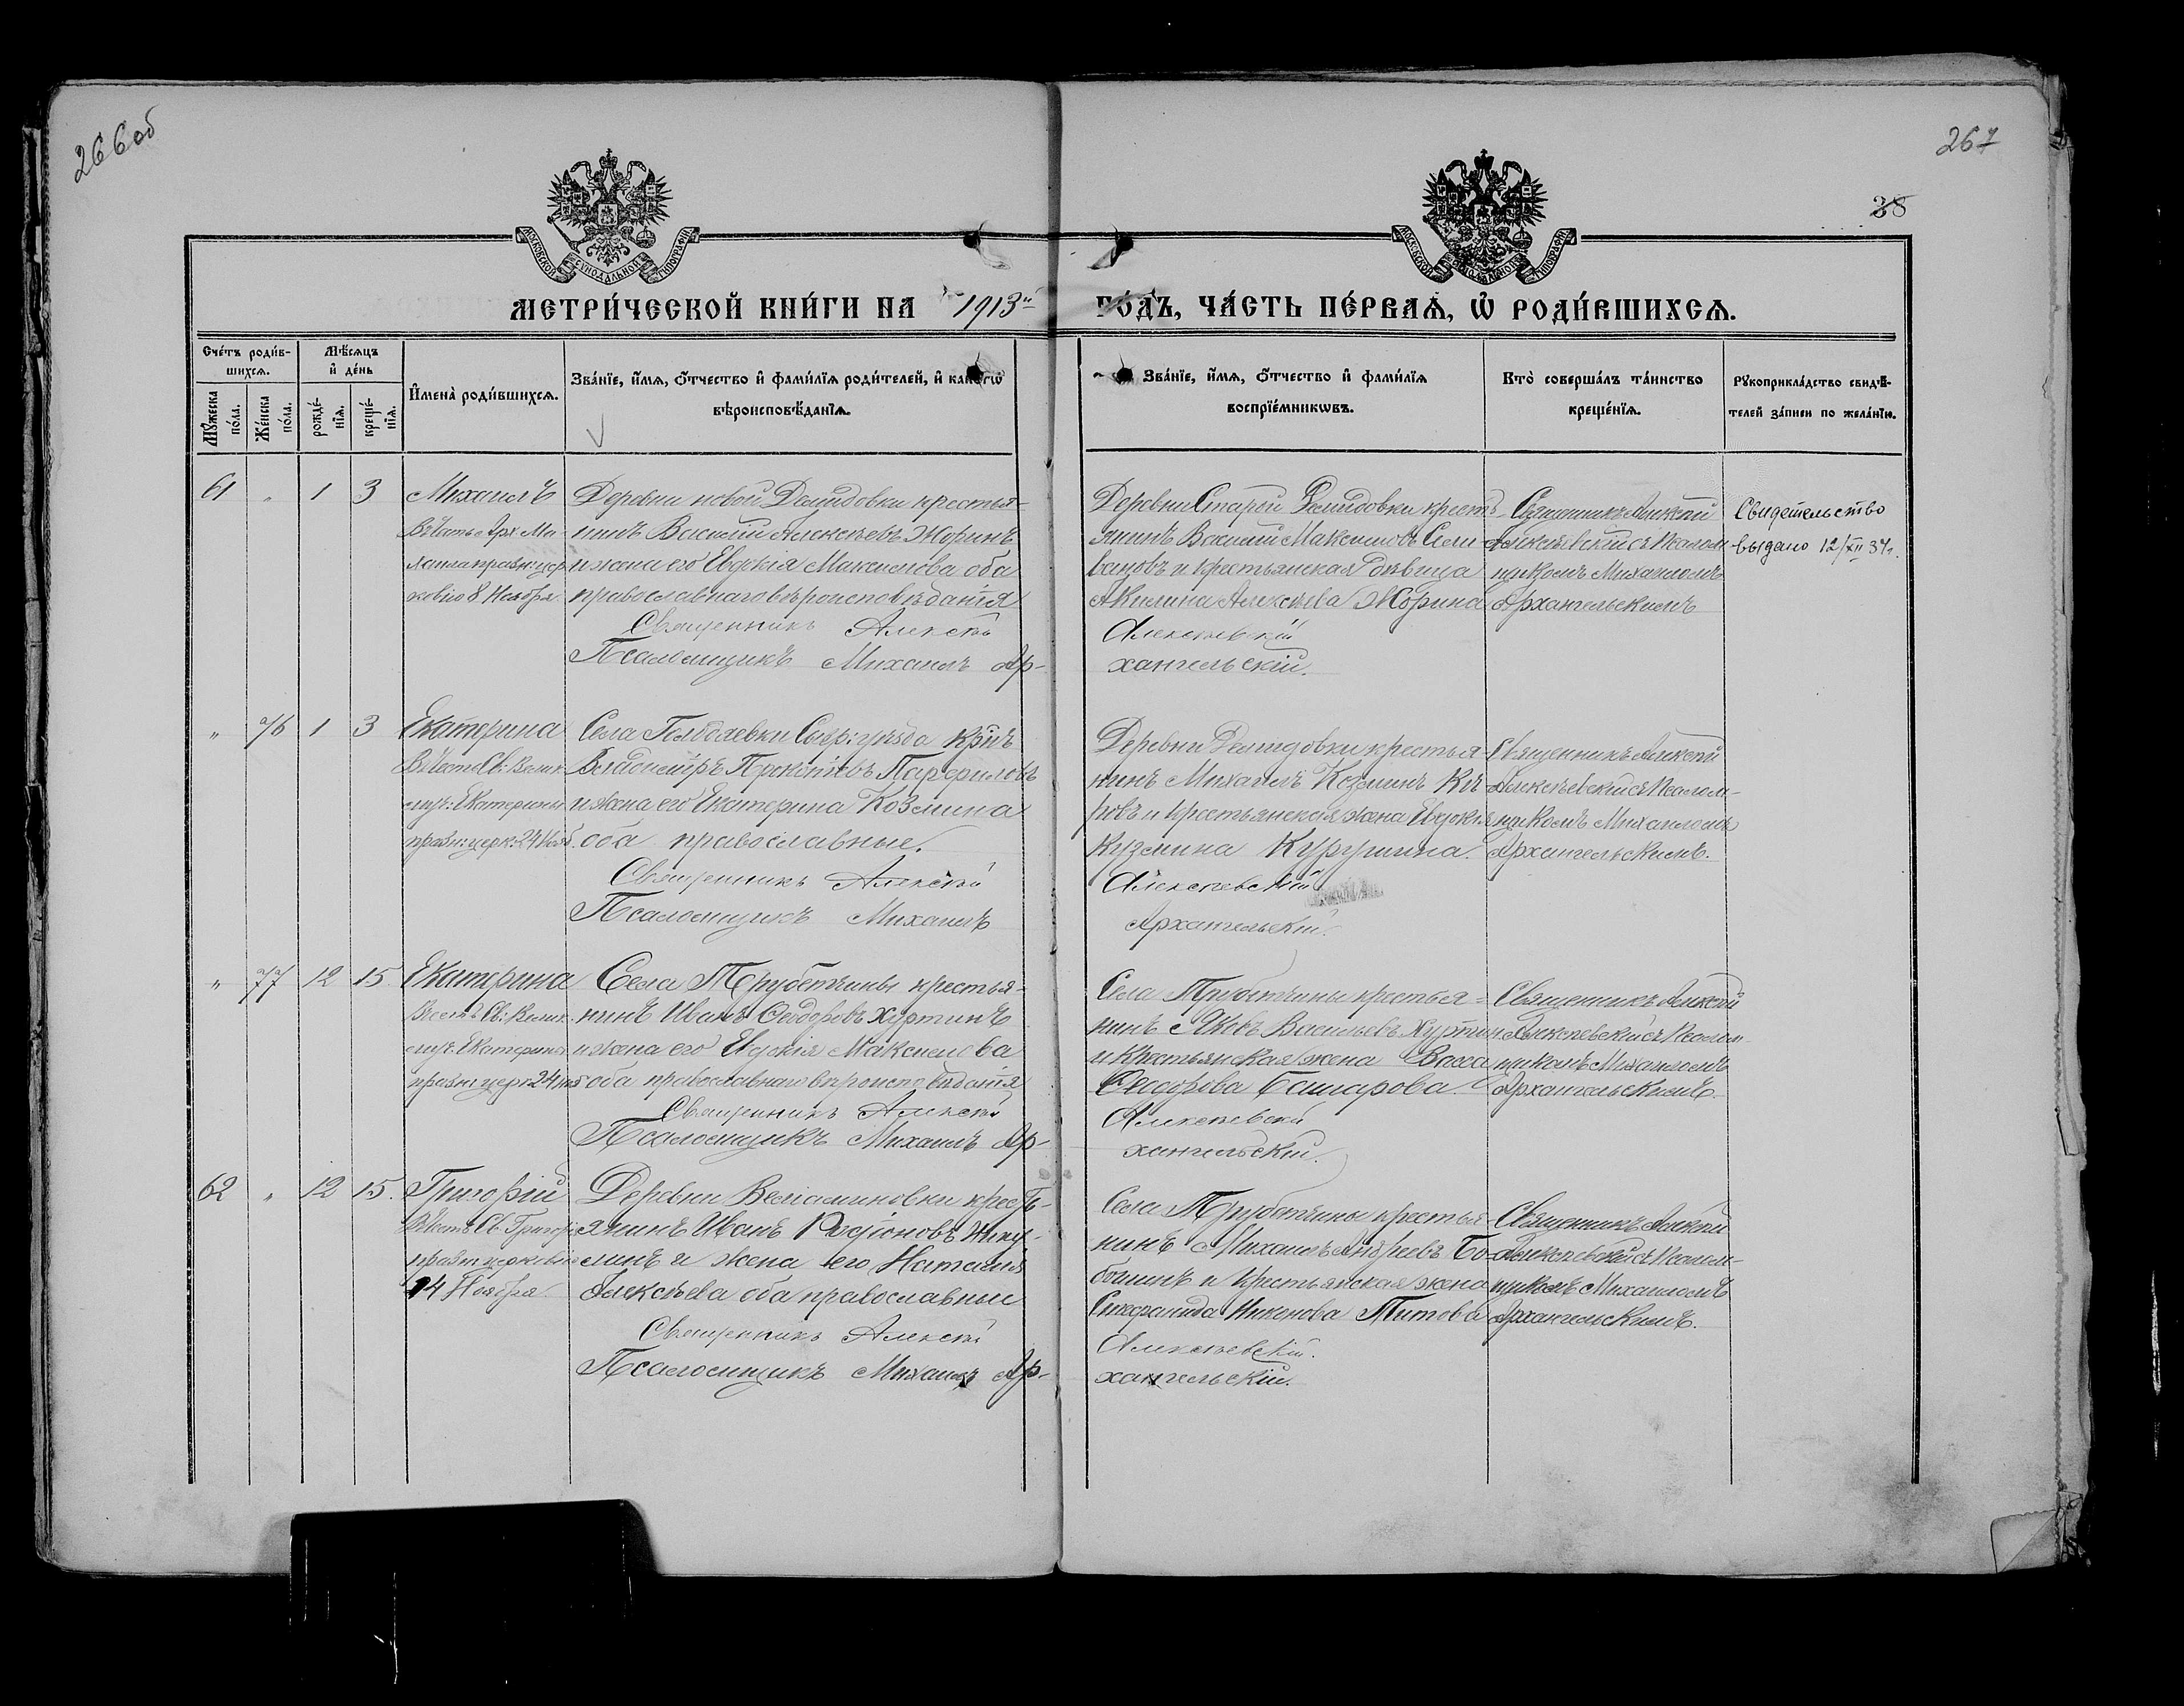 266об
267
38
МОСКОВСКОЙ СѴНОДАЛЬНОЙ ТИПОГРАФІИ
МОСКОВСКОЙ СѴНОДАЛЬНОЙ ТИПОГРАФІИ
МЕТРИ́ЧЕСКОЙ КНИ́ГИ НА 1913й ГО́ДЪ, ЧА́СТЬ ПЕ́РВАѦ, Ѡ҆ РОДИ́ВШИХСѦ.
Сче́тъ роди́в-
шихсѧ.
Мѣ́сѧцъ
и҆ де́нь
Мꙋ́жеска по́ла.
Же́нска по́ла.
рожде́-
нїѧ.
креще́-
нїѧ.
И҆мена̀ роди́вшихсѧ.
Зва́нїе, и҆́мѧ, ѻ҆́тчество и҆ фами́лїѧ роди́телей, и҆ како́гѡ
вѣроисповѣ́данїѧ.
Зва́нїе, и҆́мѧ, ѻ҆́тчество и҆ фами́лїѧ
воспрїе́мникѡвъ.
Кто̀ соверша́лъ та́инство
креще́нїѧ.
Рꙋкоприкла́дство свидѣ́-
телей за́писи по жела́нїю.
61 " 1 3
Михаилъ
Въ честь Арх. Ми-
хаила празн. цер
ковію 8 Ноября
Деревни новой Демидовки крестья-
нинъ Василій Алексѣевъ Жоринъ
и жена его Евдокія Максимова оба
православнаго вѣроисповѣданія
Священникъ Алексѣй
Псаломщикъ Михаилъ Ар-
Деревни Старой Демидовки кресть-
янинъ Василій Максимовъ Сели-
вановъ и крестьянская дѣвица
Акилина Алексѣева Жорина
Алексѣевскій
хангельскій.
Священникъ Алексѣй
Алексѣевскій съ Псалом
щикомъ Михаиломъ
Архангельскимъ
Свидетельство
выдано 12/XII 34г.
" 76 1 3
Екатерина
Въ честь Св: Велик.
муч: Екатерины
празн: церк: 24 Нояб.
Села Голдаевки Сызр: уѣзда кр҃нъ
Владиміръ Прокопіевъ Парфиловъ
и жена его Екатерина Козмина
оба православные.
Священникъ Алексѣй
Псаломщикъ Михаилъ
Деревни Демидовки крестья-
нинъ Михаилъ Козминъ Ки-
ровъ и крестьянская жена Евдокія
Кузмина Курушина.
Алексѣевскій
Архангельскій.
Священникъ Алексѣй
Алексѣевскій съ Псалом-
щикомъ Михаиломъ
Архангельскимъ.
" 77 12 15
Екатерина
Въ честь Св: Велик.
муч: Екатерины
празн: церк 24 Нояб
Села Трубетчины крестья-
нинъ Иванъ Ѳеодоровъ Хуртинъ
и жена его Евдокія Максимова
оба православнаго вѣроисповѣданія
Священникъ Алексѣй
Псаломщикъ Михаилъ Ар-
Села Трубетчины крестья-
нинъ Яковъ Васильевъ Хуртин
и крестьянская жена Васса
Ѳеодорова Башарова.
Алексѣевскій
хангельскій.
Священникъ Алексѣй
Алексѣевскій съ Псалом-
щикомъ Михаиломъ
Архангельскимъ.
62 " 12 15.
Григорій
Въ честь Св. Григорія
празн церковію
14 Ноября
Деревни Веліаминовки кресть-
янинъ Иванъ Родіоновъ Жику-
линъ и жена его Наталія
Алексѣева оба православные
Священникъ Алексѣй
Псаломщикъ Михаилъ Ар-
Села Трубетчины крестья-
нинъ Михаилъ Андреевъ Бо-
бошинъ и крестьянская жена
Стефанида Никонова Титова
Алексѣевскій.
хангельскій.
Священникъ Алексѣй
Алексѣевскій съ Псалом-
щикомъ Михаиломъ
Архангельскимъ.